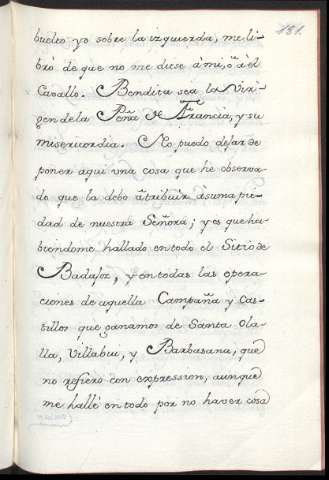 181.
buelto yo sobre la izquierda, me li-
bró de que no me diese à mi, ô à el
Cavallo. Bendita sea la Vir-
gen de la Peña de Francia, y su
misericordia. No puedo dejar de
poner aqui una cosa que he observa-
do que la debo atribuir à suma pie-
dad de nuestra Señora; y es que ha-
biendome hallado en todo el Sitio de
Badajoz, y en todas las opera-
ciones de aquella Campaña y Cas-
tillos que ganamos de Santa Ola-
lla, Villabui, y Barbasana, que
no refiero con expression, aunque
me hallé en todo por no haver cosa